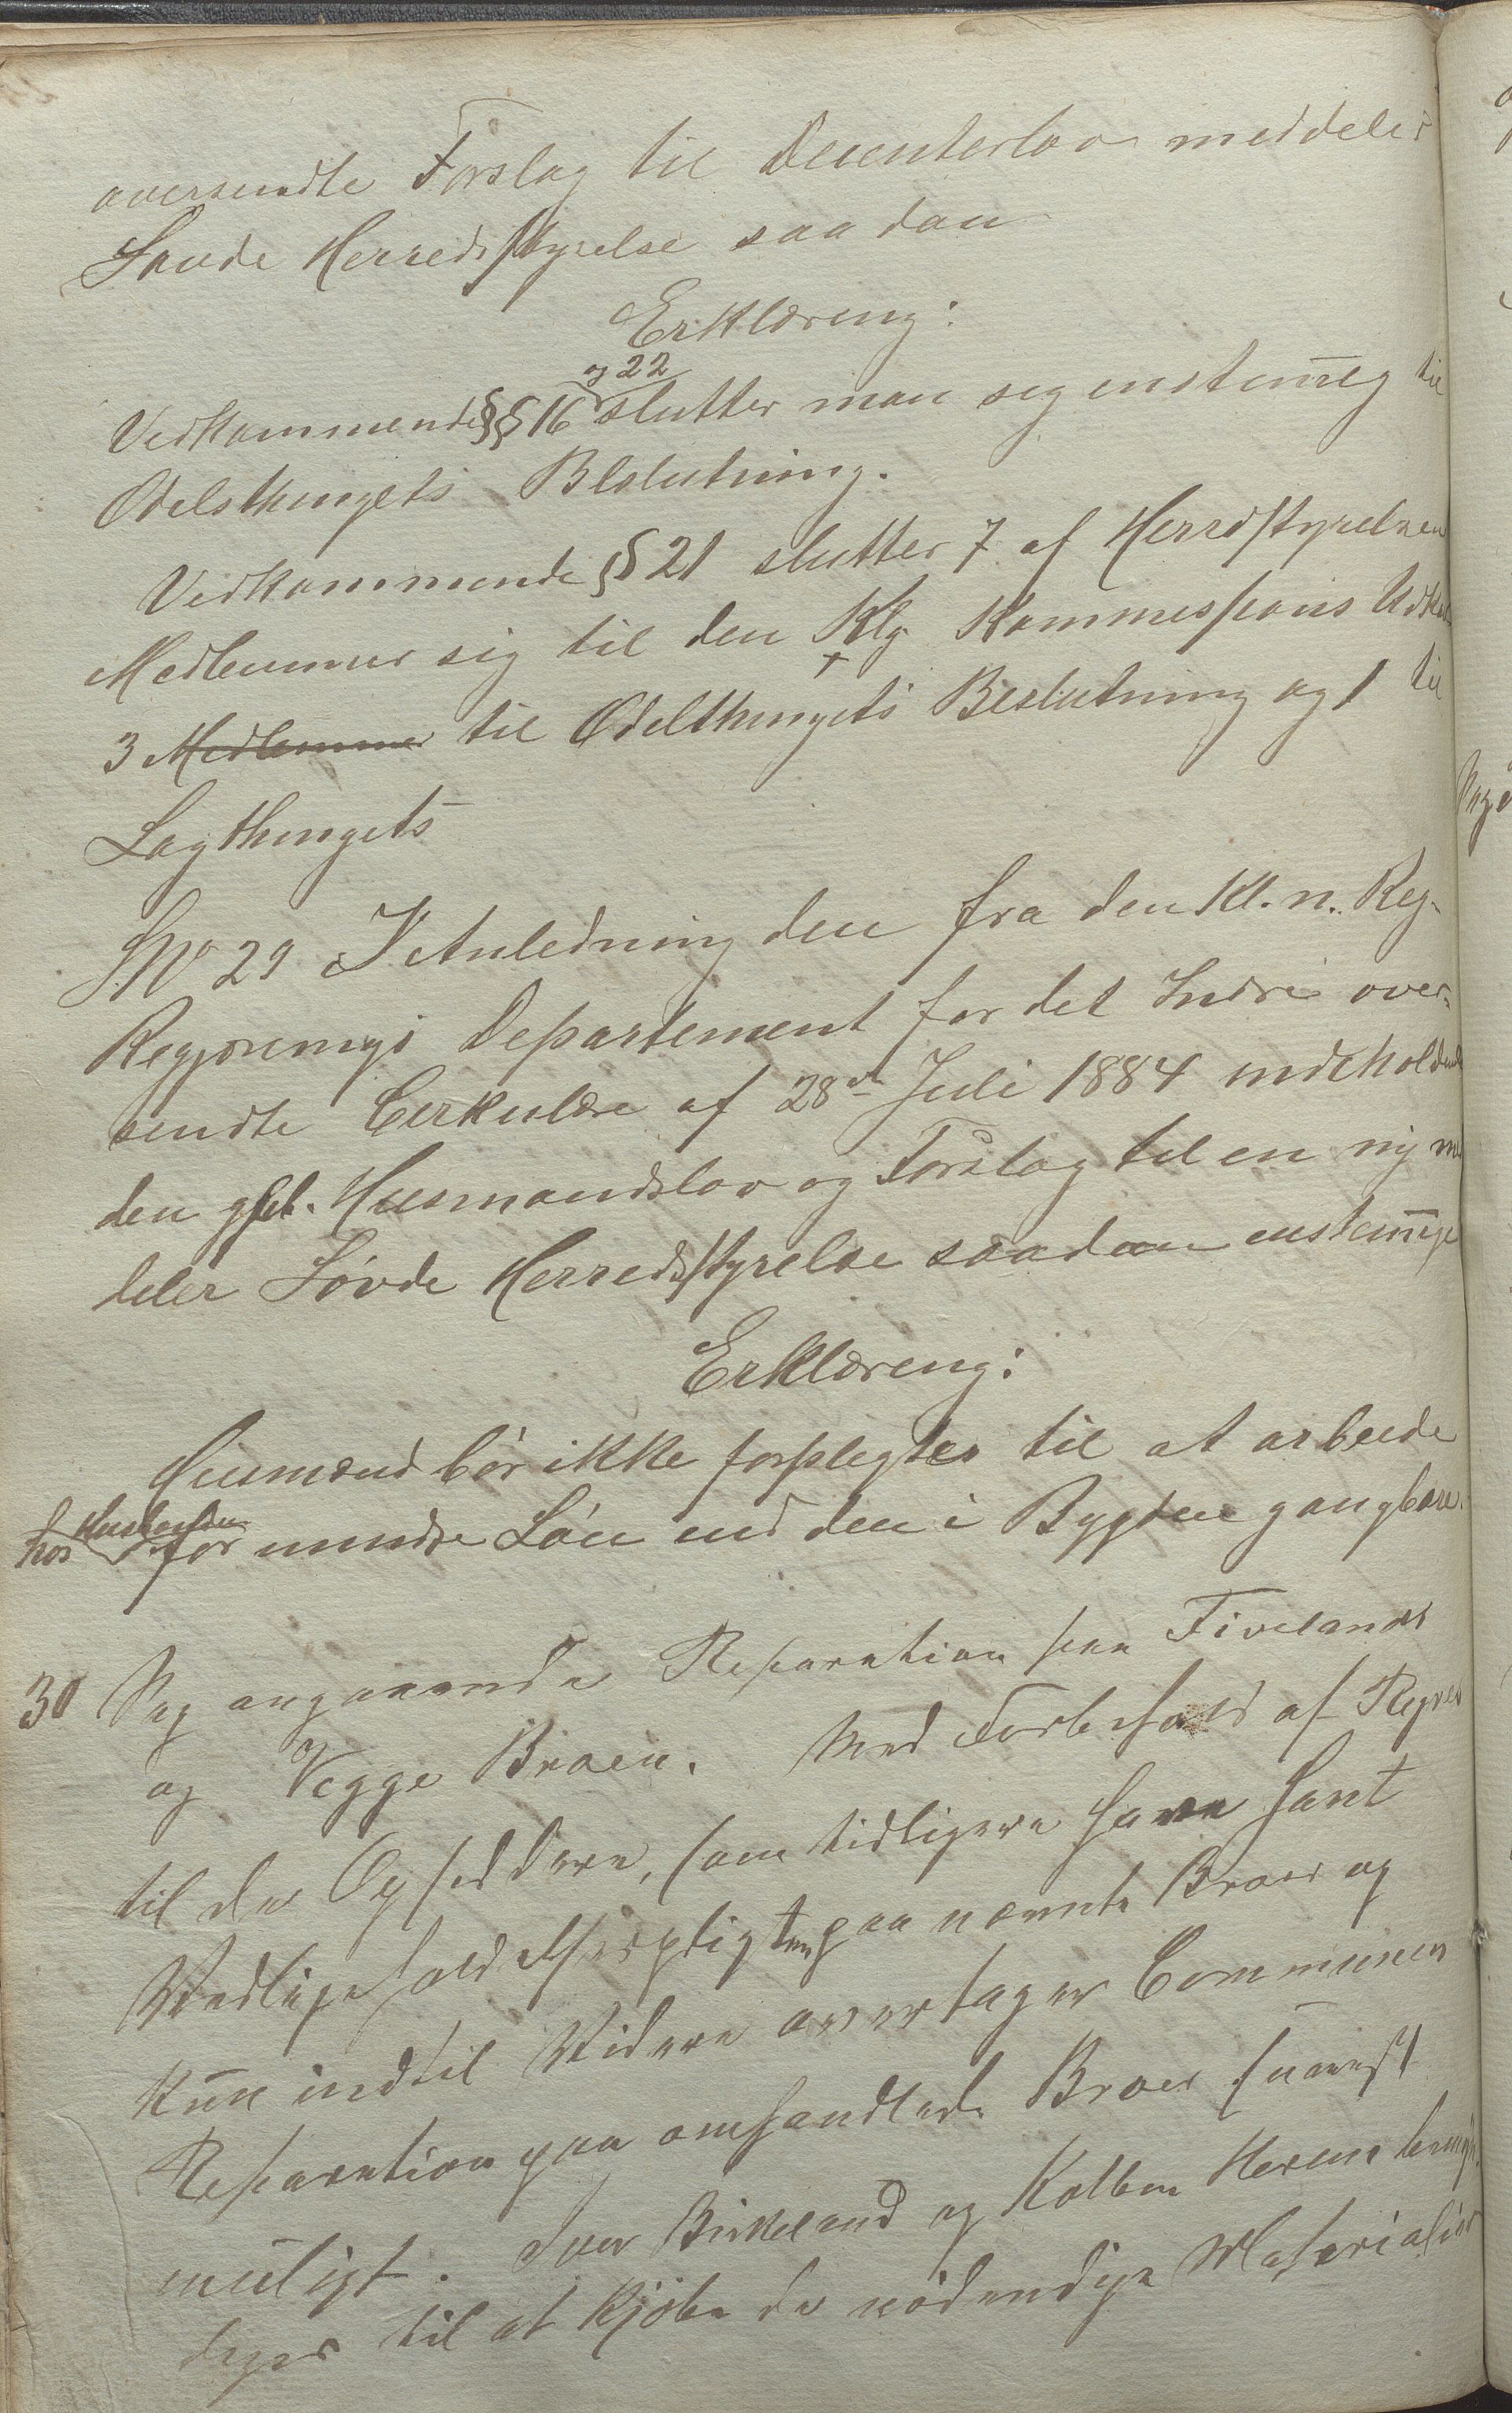 oversendte Forslag til Decenterlov meddeler
Søvde Herredsstyrelse saadan
Erklæring:
og 22
Vedkommende §§ 16 slutter man sig enstemig til
Odelsthingets Beslutning.
Vedkommende § 21 slutter 7 af Herredstyrelsen
Medlemmer sig til den Klg. Kommissions Udkast
3 Medlemmer til Odelthingets Beslutning og 1 til
Lagthingets
S. No 29 I Anledning den fra den Kl. n. Reg-
Regjerings Departement for det Indre over-
sendte Cirkulære af 28de Juli 1884 indeholdende
den gjel. Husmandslov og Forslag til en ny med
deler Søvde Herredsstyrelse saadan enstemige
Erklæring:
Husmænd bør ikke forpligtes til at arbeide
hos Husbonden for mindre Løn end den i Bygden gangbare.
30 Sag angaaende Reparation paa Fivelands
og Vegge Broen. Med Forbehold af Regres
til de Opsiddere, som tidligere have havt
Vedligeholdelsespligten paa nævnte Broer og
kun indtil Videre overtager Communen
Reparation paa omhandlede Broer snarest
muligt. Iver Birkeland og Kolben Herum bemyn-
diges til at kjøbe de nødvendige Materialier